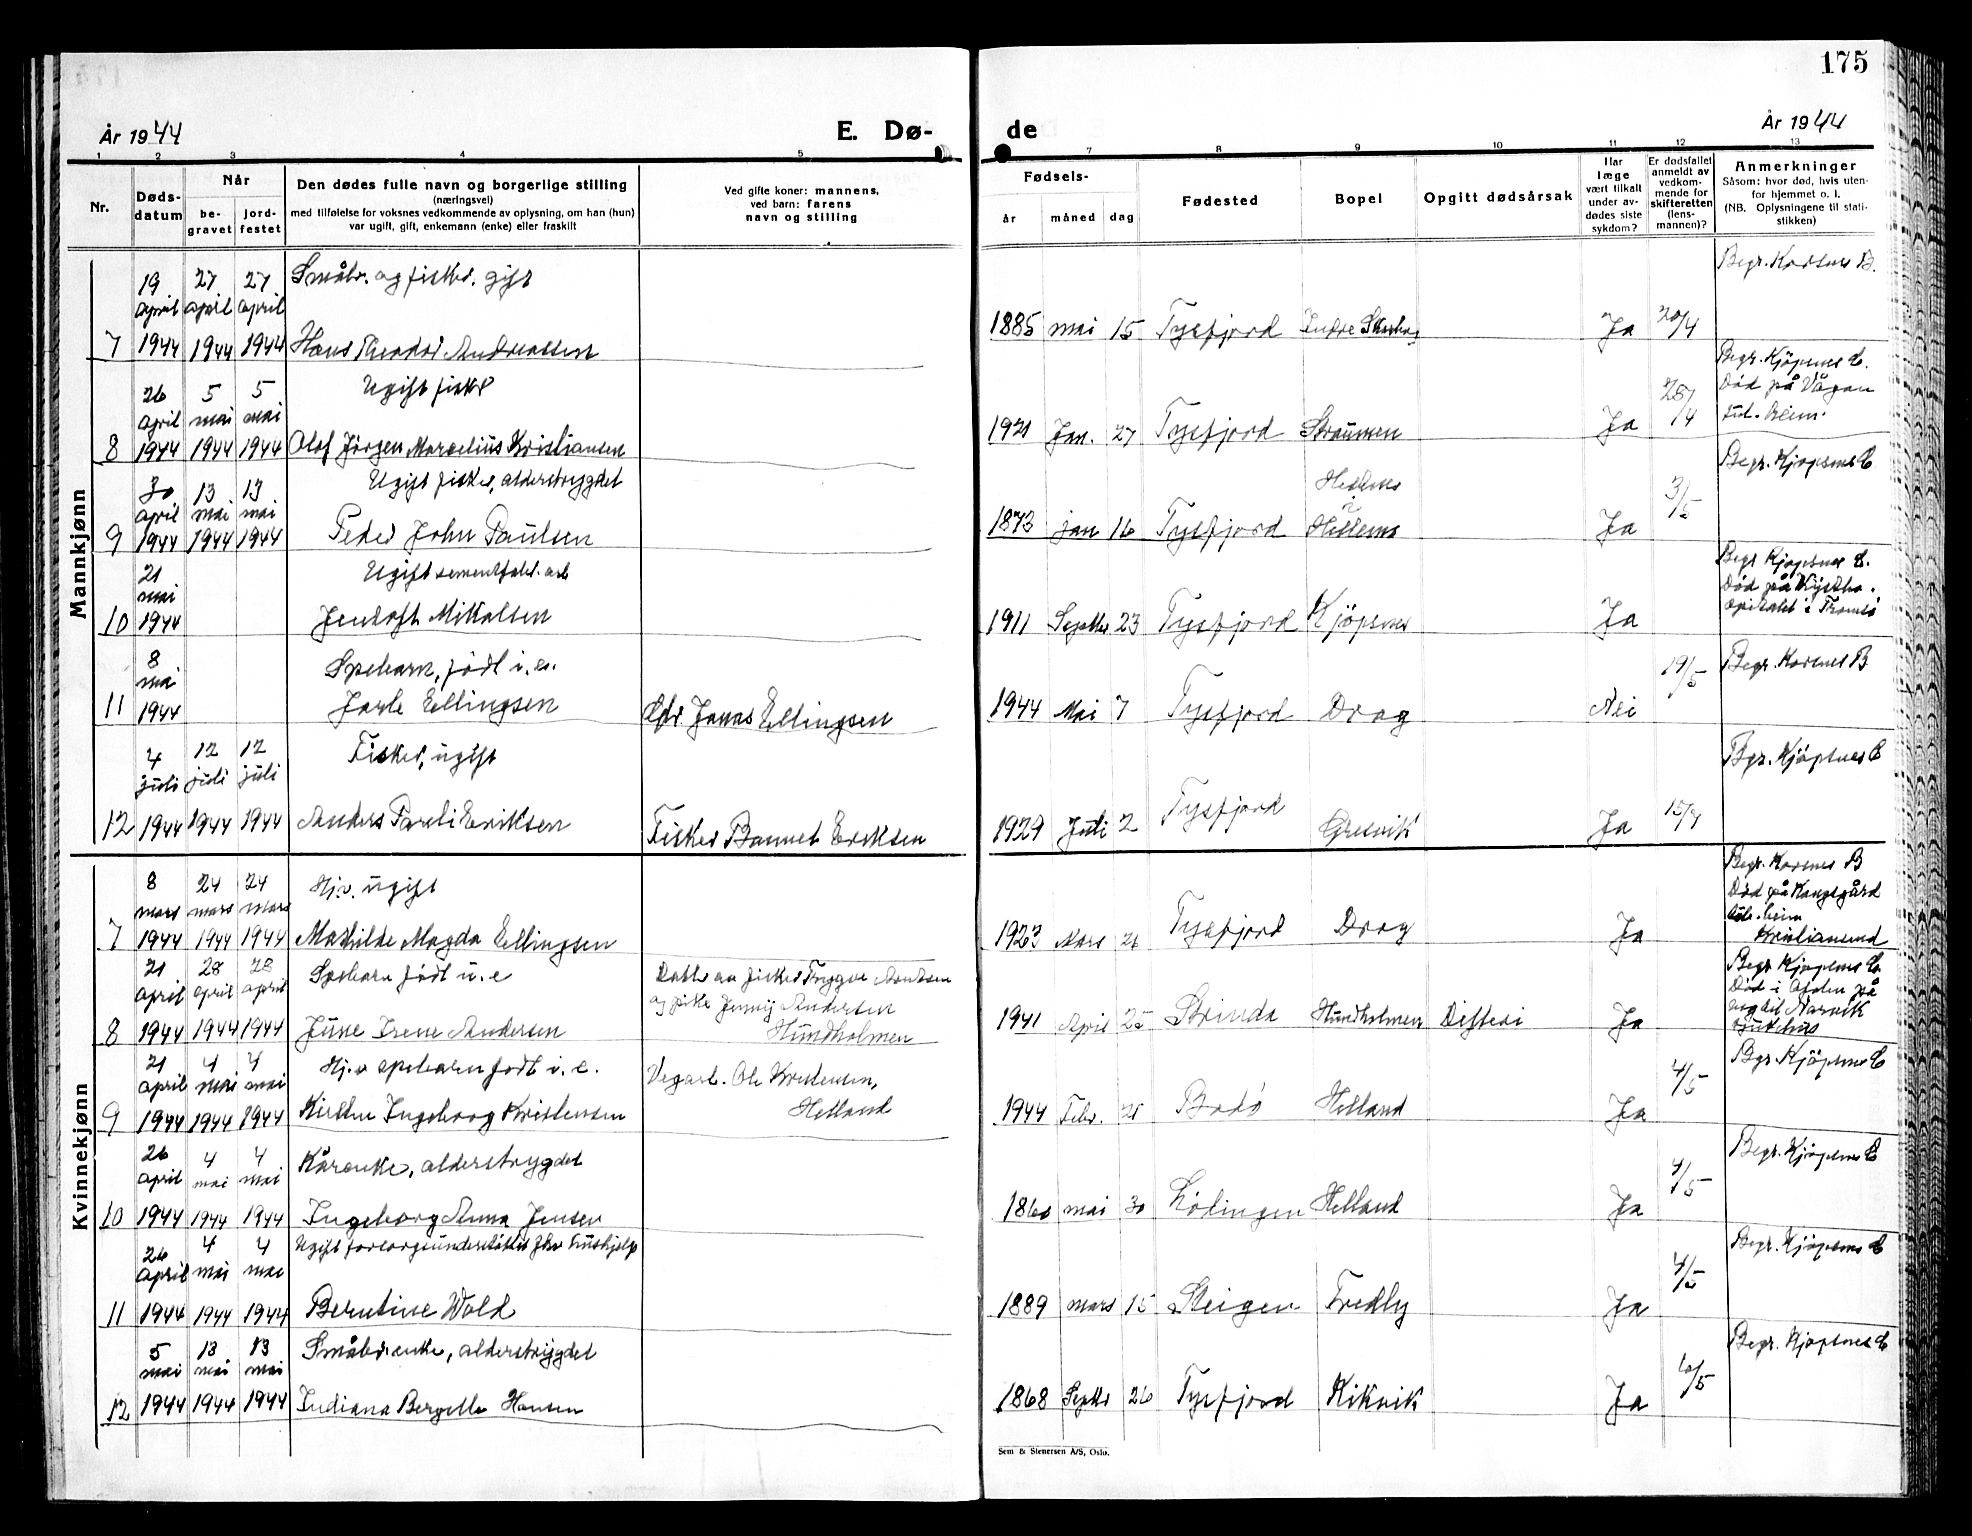 175
År 1944
E. Dø-
de
År 1944
1 2 3 4 5
7 8 9 10 11 12 13
Nr.
Døds-
datum
Når
be-
gravet
jord-
festet
Den dødes fulle navn og borgerlige stilling
(næringsvei)
med tilføielse for voksnes vedkommende av oplysning, om han (hun)
var ugift, gift, enkemann (enke) eller fraskilt
Ved gifte koner: mannens,
ved barn: farens
navn og stilling
Fødsels-
år
måned
dag
Fødested
Bopel
Opgitt dødsårsak
Har
læge
vært tilkalt
under av-
dødes siste
sykdom?
Er dødsfallet
anmeldt av
vedkom-
mende for
skifteretten
(lens-
mannen)?
Anmerkninger
Såsom: hvor død, hvis uten-
for hjemmet o. l.
(NB. Oplysningene til stati-
stikken)
Mannkjønn
7
19 april 1944
27 april 1944
27 april 1944
Småbr. og fisker. gift
Hans Theodor Andreassen
1885 mai 15 Tysfjord Indre
Ja
20/4
Begr. Korsnes B.
8
26 april 1944
5 mai 1944
5 mai 1944
Ugift fisker
Olaf Jörgen Marcelius Kristiansen
1921 Jan. 27 Tysfjord Straumen
Ja
28/4
Begr. Kjöpsnes C.
Död på Vågan
9
30 april 1944
13 mai 1944
13 mai 1944
Ugift fisker, alderstrygdet
Peder John Paulsen
1873 jan 16 Tysfjord
Ja
3/5
Begr. Kjöpsnes C
10
21 mai 1944
Ugift
Jentoft Mikalsen
1911 Septbr 23 Tysfjord Kjöpsnes
Ja
Begr Kjöpsnes C.
Död på
i Tromsö
11
8 mai 1944
Spebarn, födt i. e.
Jarle Ellingsen
Jonas Ellingsen
1944 Mai 7 Tysfjord Drag
Nei
19/5
Begr. Korsnes B
12
4 juli 1944
12 juli 1944
12 juli 1944
Fisker, ugift
Anders Pareli Eriksen
Fisker Eriksen
1929 Juli 2 Tysfjord Gresvik
Ja
15/7
Bgr. Kjöpsnes C
Kvinnekjønn
7
8 mars 1944
24 mars 1944
24 mars 1944
Hj.v. ugift
Mathilde Magda Ellingsen
1923 Mars 21 Tysfjord Drag
Ja
Begr. Korsnes B
Död på Kongsgård
Kristiansund
8
21 april 1944
28 april 1944
28 april 1944
Spebarn födt u. e
June Irene Andersen
Datter av fisker Trygve
og pike Jenny Andersen
Hundholmen
1941 April 25 Strinda Hundholmen Difteri
Ja
Begr Kjöpsnes C.
Död i
Narvik
sjukehus
9
21 april 1944
4 mai 1944
4 mai 1944
Hj.v spebarn födt i. e.
Kirsten Ingeborg Kristensen
Vegarb. Ole Kristensen,
Helland
1944 Febr. 21 Bodö Helland
Ja
4/5
Bgr. Kjöpsnes C
10
26 april 1944
4 mai 1944
4 mai 1944
Kårenke, alderstrygdet
Ingeborg Anna Jensen
1860 mai 30 Lödingen Helland
Ja
4/5
Begr. Kjöpsnes C
11
26 april 1944
4 mai 1944
4 mai 1944
Ugift forsorgsunderstöttet
Berntine Wold
1889 mars 15 Steigen Fredly
Ja
4/5
Begr. Kjöpsnes C
12
5 mai 1944
13 mai 1944
13 mai 1944
Småbr.enke, alderstrygdet
Indiana Bergette Hansen
1868 Septbr 26 Tysfjord Kikvik
Ja
Begr. Kjöpsnes C
Sem & Stenersen A/S, Oslo.